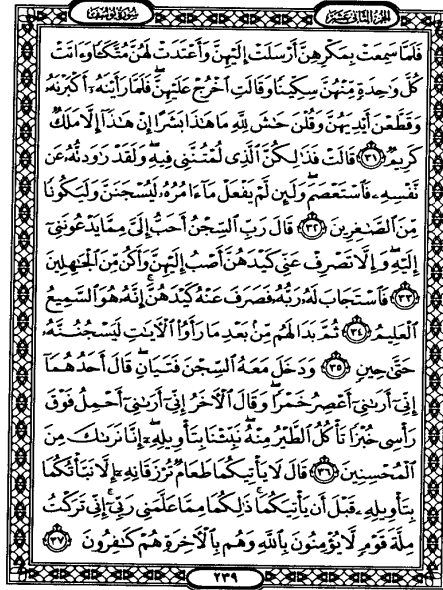 الجزء الثاني عشر
سورة يوسف
فَلَمَّا سَمِعَتْ بِمَكْرِهِنَّ أَرْسَلَتْ إِلَيْهِنَّ وَأَعْتَدَتْ لَهُنَّ مُتَّكَـًٔا وَءَاتَتْ
كُلَّ وَٰحِدَةٍ مِّنْهُنَّ سِكِّينًا وَقَالَتِ ٱخْرُجْ عَلَيْهِنَّ ۖ فَلَمَّا رَأَيْنَهُۥٓ أَكْبَرْنَهُۥ
وَقَطَّعْنَ أَيْدِيَهُنَّ وَقُلْنَ حَـٰشَ لِلَّهِ مَا هَـٰذَا بَشَرًا إِنْ هَـٰذَآ إِلَّا مَلَكٌ
كَرِيمٌ ﴿٣١﴾ قَالَتْ فَذَٰلِكُنَّ ٱلَّذِى لُمْتُنَّنِى فِيهِ ۖ وَلَقَدْ رَٰوَدتُّهُۥ عَن
نَّفْسِهِۦ فَٱسْتَعْصَمَ ۖ وَلَئِن لَّمْ يَفْعَلْ مَآ ءَامُرُهُۥ لَيُسْجَنَنَّ وَلَيَكُونًا
مِّنَ ٱلصَّـٰغِرِينَ ﴿٣٢﴾ قَالَ رَبِّ ٱلسِّجْنُ أَحَبُّ إِلَىَّ مِمَّا يَدْعُونَنِىٓ
إِلَيْهِ ۖ وَإِلَّا تَصْرِفْ عَنِّى كَيْدَهُنَّ أَصْبُ إِلَيْهِنَّ وَأَكُن مِّنَ ٱلْجَـٰهِلِينَ
﴿٣٣﴾ فَٱسْتَجَابَ لَهُۥ رَبُّهُۥ فَصَرَفَ عَنْهُ كَيْدَهُنَّ ۚ إِنَّهُۥ هُوَ ٱلسَّمِيعُ
ٱلْعَلِيمُ ﴿٣٤﴾ ثُمَّ بَدَا لَهُم مِّنۢ بَعْدِ مَا رَأَوُا۟ ٱلْـَٔايَـٰتِ لَيَسْجُنُنَّهُۥ
حَتَّىٰ حِينٍ ﴿٣٥﴾ وَدَخَلَ مَعَهُ ٱلسِّجْنَ فَتَيَانِ ۖ قَالَ أَحَدُهُمَآ
إِنِّىٓ أَرَىٰنِىٓ أَعْصِرُ خَمْرًا ۖ وَقَالَ ٱلْـَٔاخَرُ إِنِّىٓ أَرَىٰنِىٓ أَحْمِلُ فَوْقَ
رَأْسِى خُبْزًا تَأْكُلُ ٱلطَّيْرُ مِنْهُ ۖ نَبِّئْنَا بِتَأْوِيلِهِۦٓ ۖ إِنَّا نَرَىٰكَ مِنَ
ٱلْمُحْسِنِينَ ﴿٣٦﴾ قَالَ لَا يَأْتِيكُمَا طَعَامٌ تُرْزَقَانِهِۦٓ إِلَّا نَبَّأْتُكُمَا
بِتَأْوِيلِهِۦ قَبْلَ أَن يَأْتِيَكُمَا ۚ ذَٰلِكُمَا مِمَّا عَلَّمَنِى رَبِّىٓ ۚ إِنِّى تَرَكْتُ
مِلَّةَ قَوْمٍ لَّا يُؤْمِنُونَ بِٱللَّهِ وَهُم بِٱلْـَٔاخِرَةِ هُمْ كَـٰفِرُونَ ﴿٣٧﴾
٢٣٩